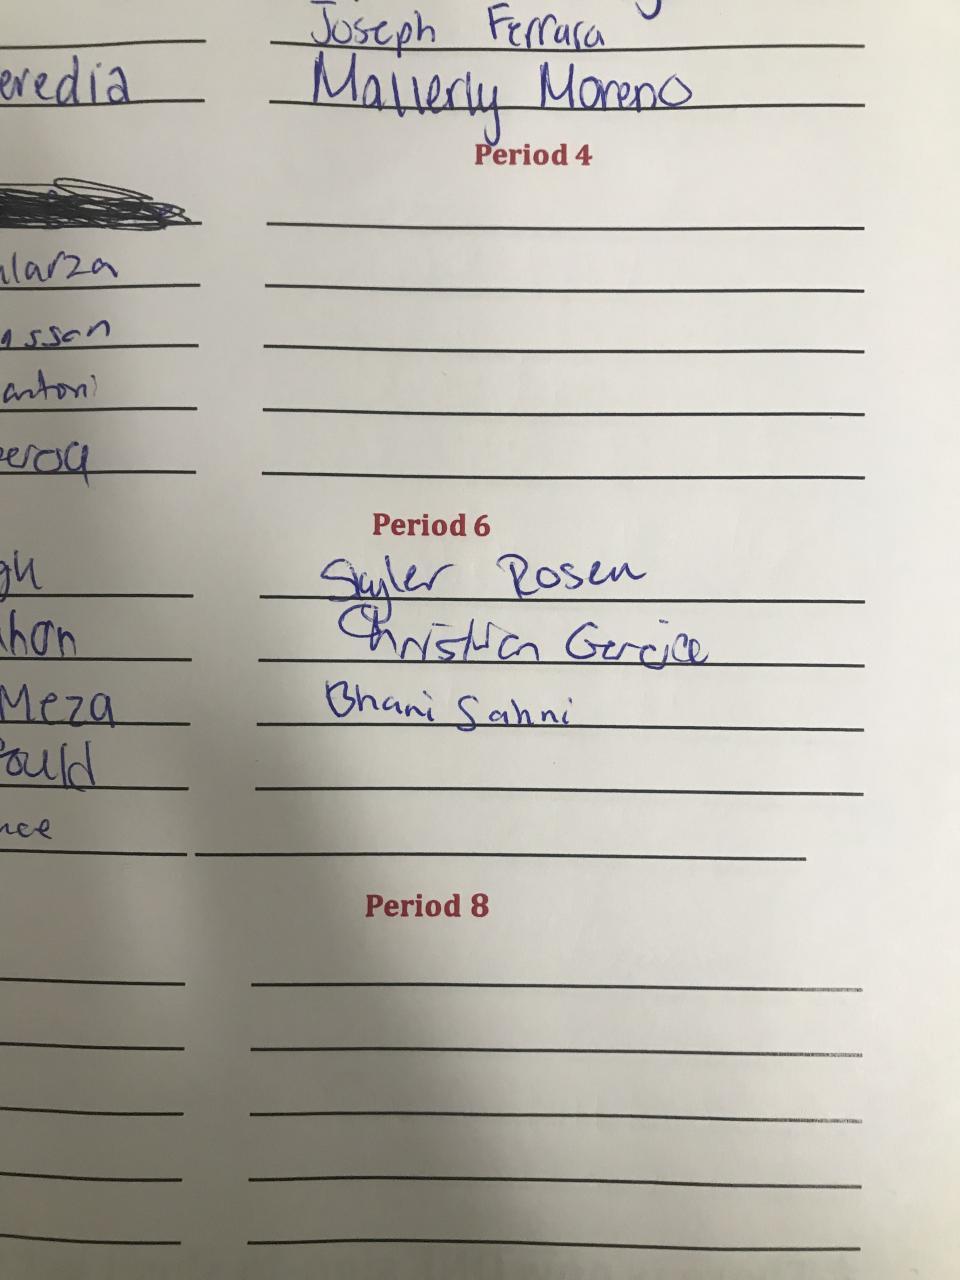 Joseph Ferrara
eredia Mallerly Moreno
Period 4
larza
assan
antoni
eroa
Period 6
gh Skyler Rosen
khan Christian Garcia
Meza Bhani Sahni
ould
nce
Period 8